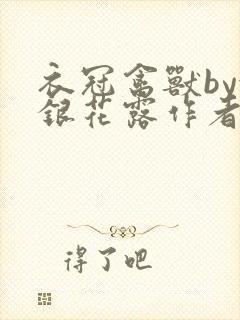 衣冠禽獸by
銀花露作者
得了吧